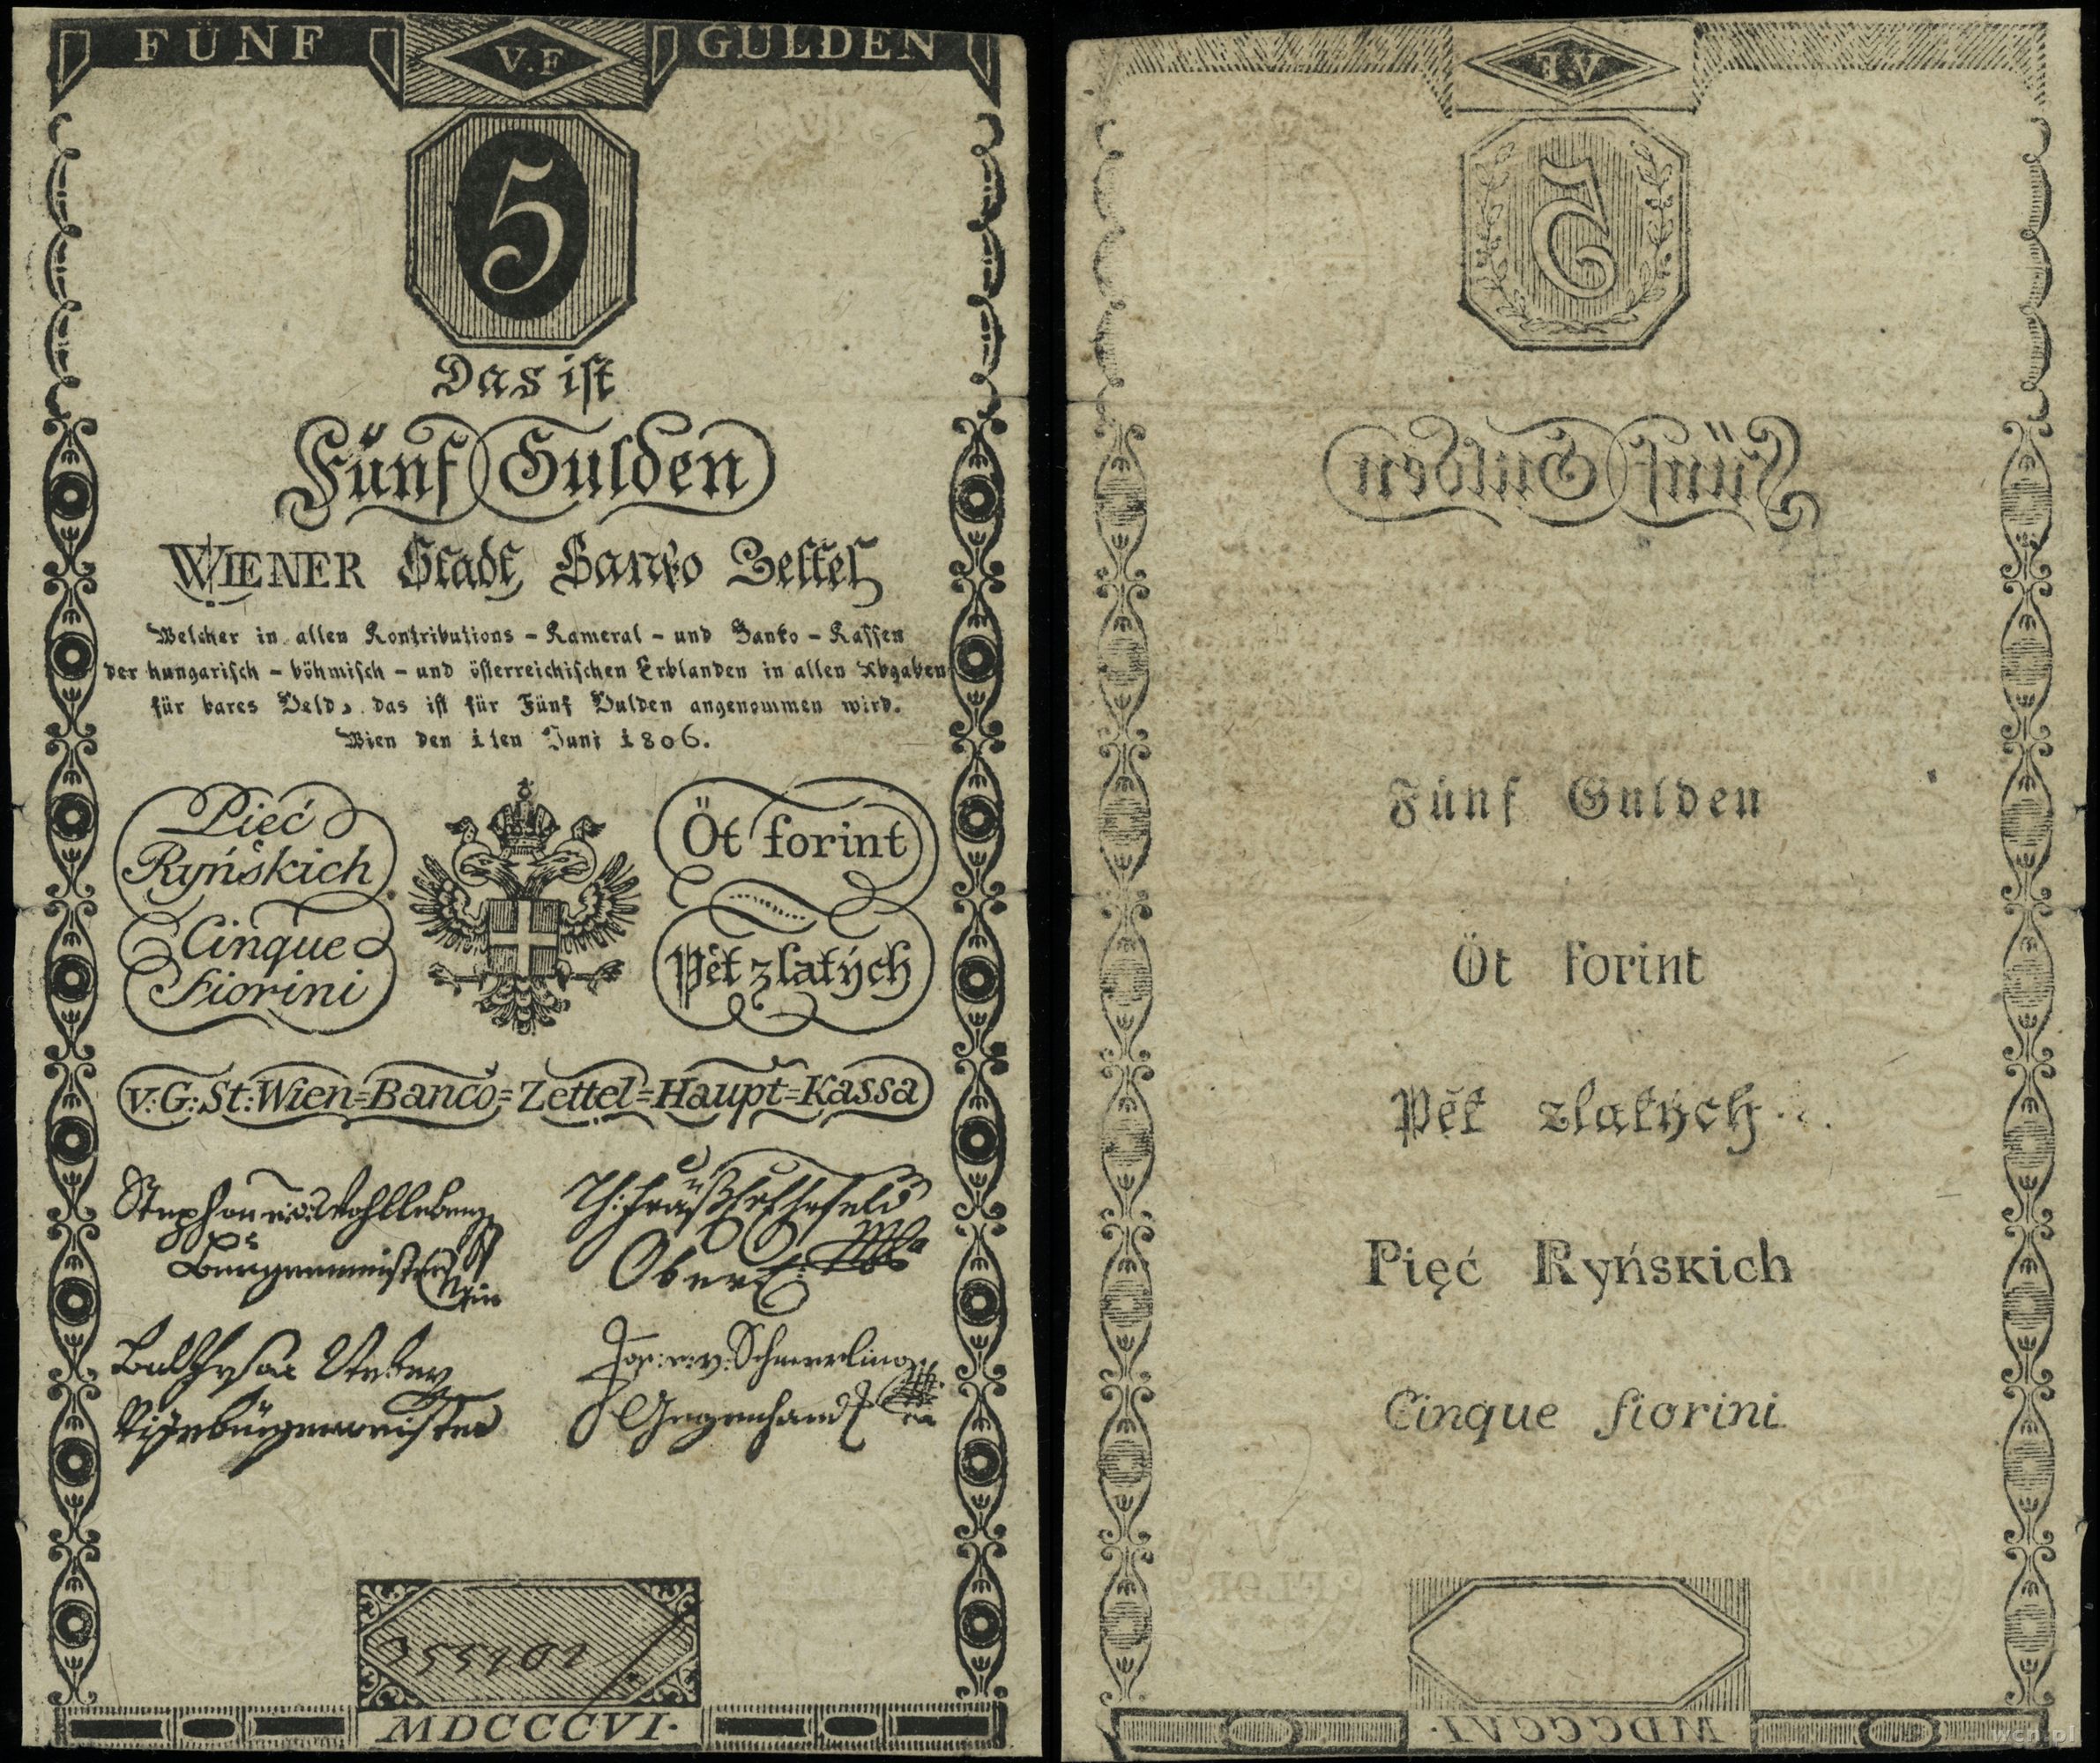 FÜNF V.F GULDEN
5
Das ist
Fünf Gulden
WIENER Stadt Banko Zettel
Welcher in allen Kontributions - Kameral - und Banko - Kassen
der hungarisch - böhmisch - und österreichischen Erblanden in allen Abgaben
für bares Geld, das ist für Fünf Gulden angenommen wird.
Wien den 1ten Juni 1806.
Pięć
Ryńskich
Cinque
fiorini
Öt forint
Pět zlatých
V: G: St: Wien=Banco=Zettel=Haupt=Kassa
Stephan
Burgermeister
Ober
Vizebürgermeister
Jos: v: Schmerling
Gegenhand
MDCCCVI.
V.F
5
Fünf Gulden
Fünf Gulden
Öt forint
Pět zlatých
Pięć Ryńskich
Cinque fiorini
V.
FLOR
MDCCCVI.
wcn.pl